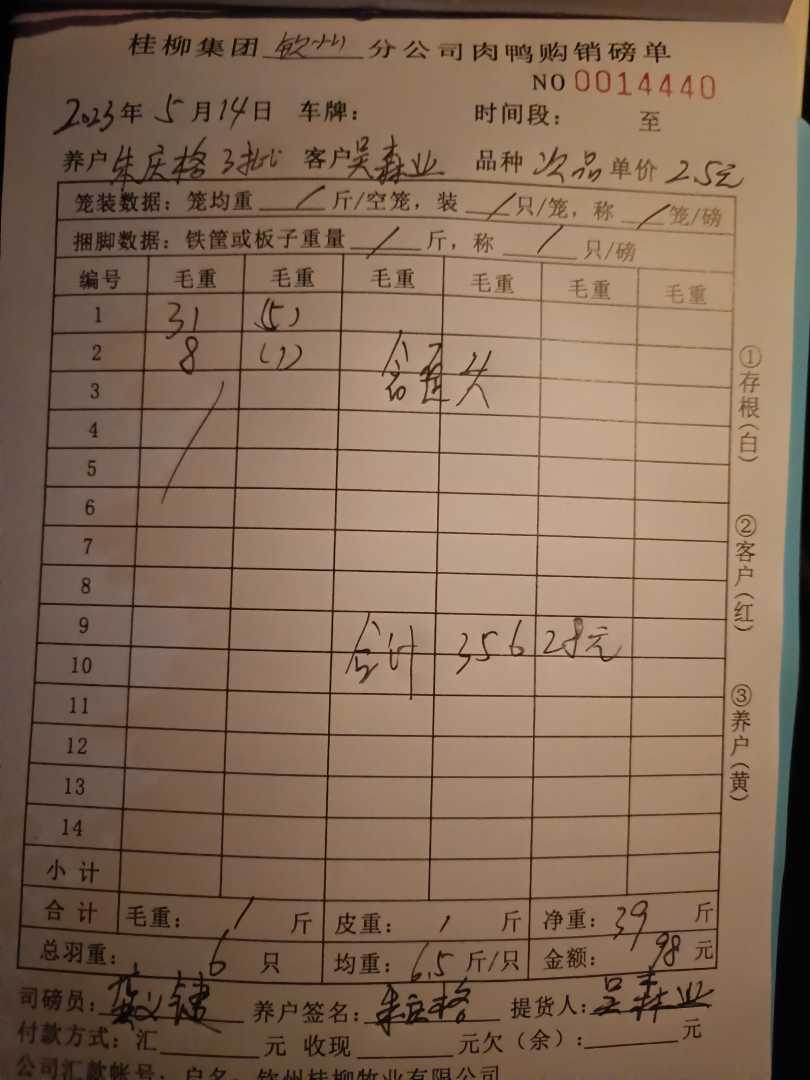 桂柳集团 钦州 分公司肉鸭购销磅单
NO 0014440
2023年 5月14日 车牌: 时间段: 至
养户 朱庆格 3批 客户吴森业 品种 次品 单价 2.5元
笼装数据:笼均重 / 斤/空笼,装 / 只/笼,称 / 笼/磅
捆脚数据:铁筐或板子重量 / 斤,称 / 只/磅
编号 毛重 毛重 毛重 毛重 毛重 毛重
1 31 (5)
2 8 (1) 含歪头
3
4
5
6
7
8
9
10 合计 35628元
11
12
13
14
小计
合计 毛重: / 斤 皮重: / 斤 净重: 39 斤
总羽重: 6 只 均重: 6.5 斤/只 金额: 98 元
司磅员: 养户签名: 朱庆格 提货人: 吴森业
付款方式:汇 元 收现 元欠(余): 元
公司汇款帐号:户名:钦州桂柳牧业有限公司
①存根(白)
②客户(红)
③养户(黄)